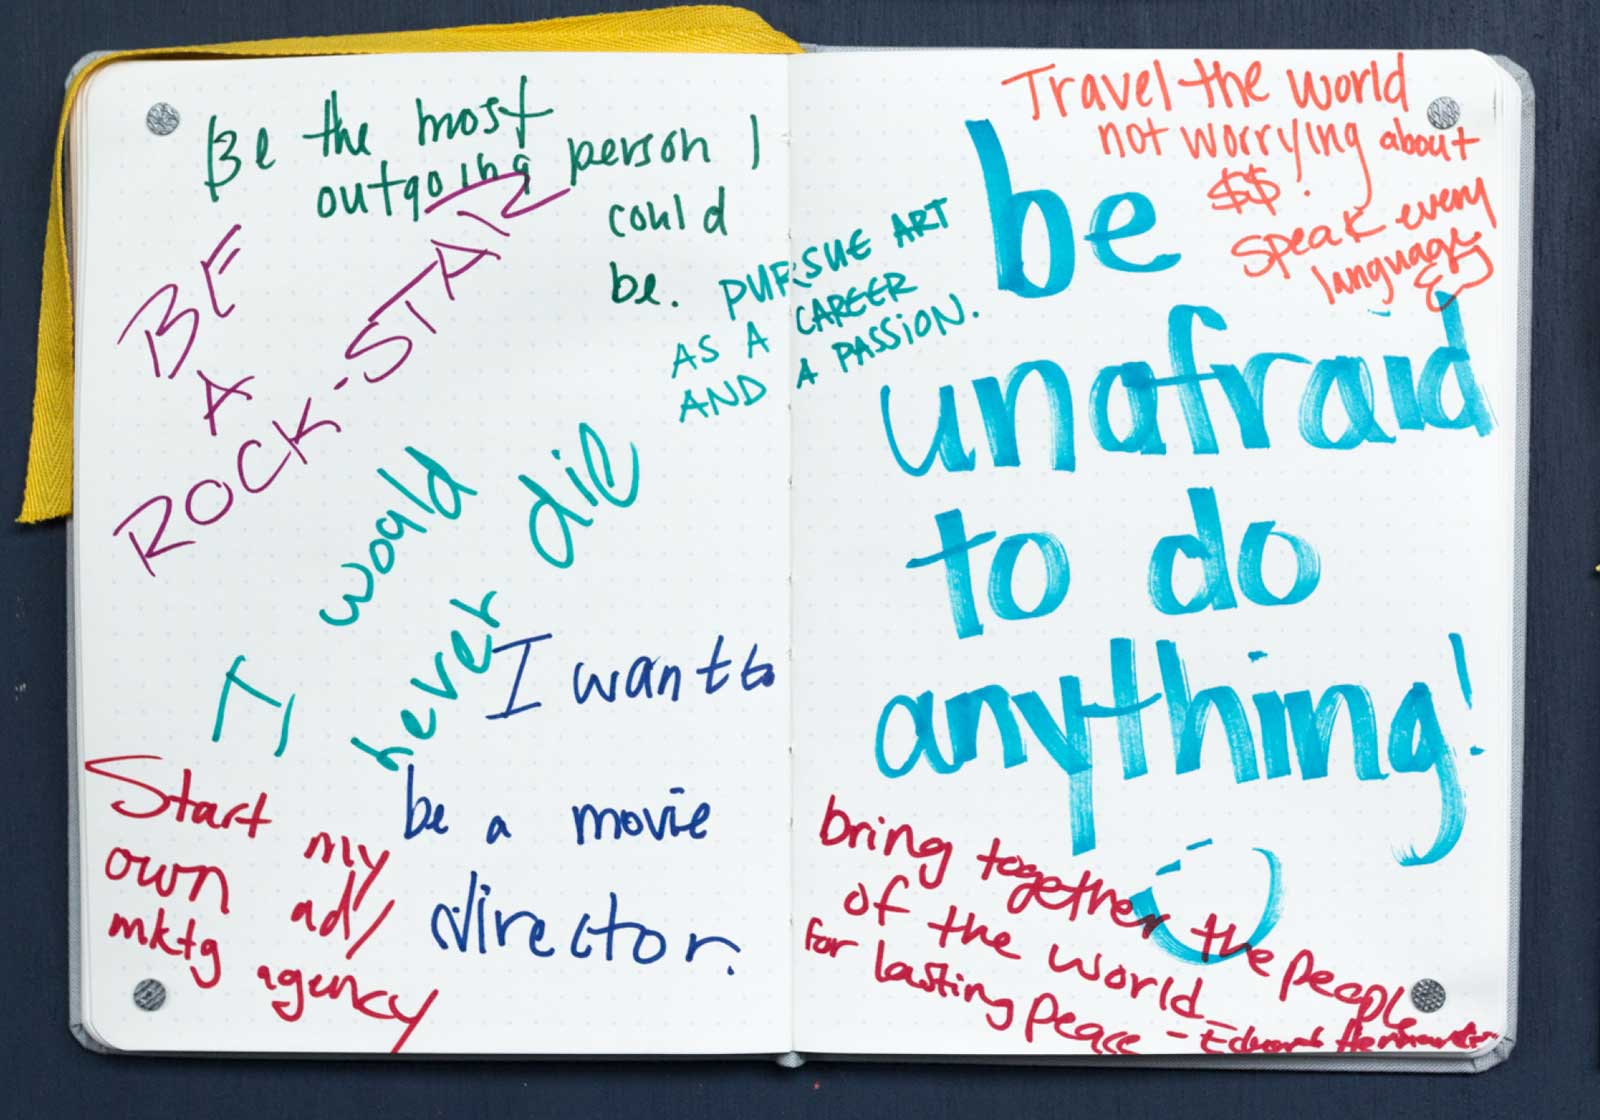 Be the most
outgoing person I
could
be.
BE
A
ROCK-STAR
PURSUE ART
AS A CAREER
AND A PASSION.
I would
never die
I want to
be a movie
director.
Start my
own ad/
mktg agency
Travel the world
not worrying about
$$!
Speak every
language
be
unafraid
to do
anything!
bring together the people
of the world
for lasting peace -